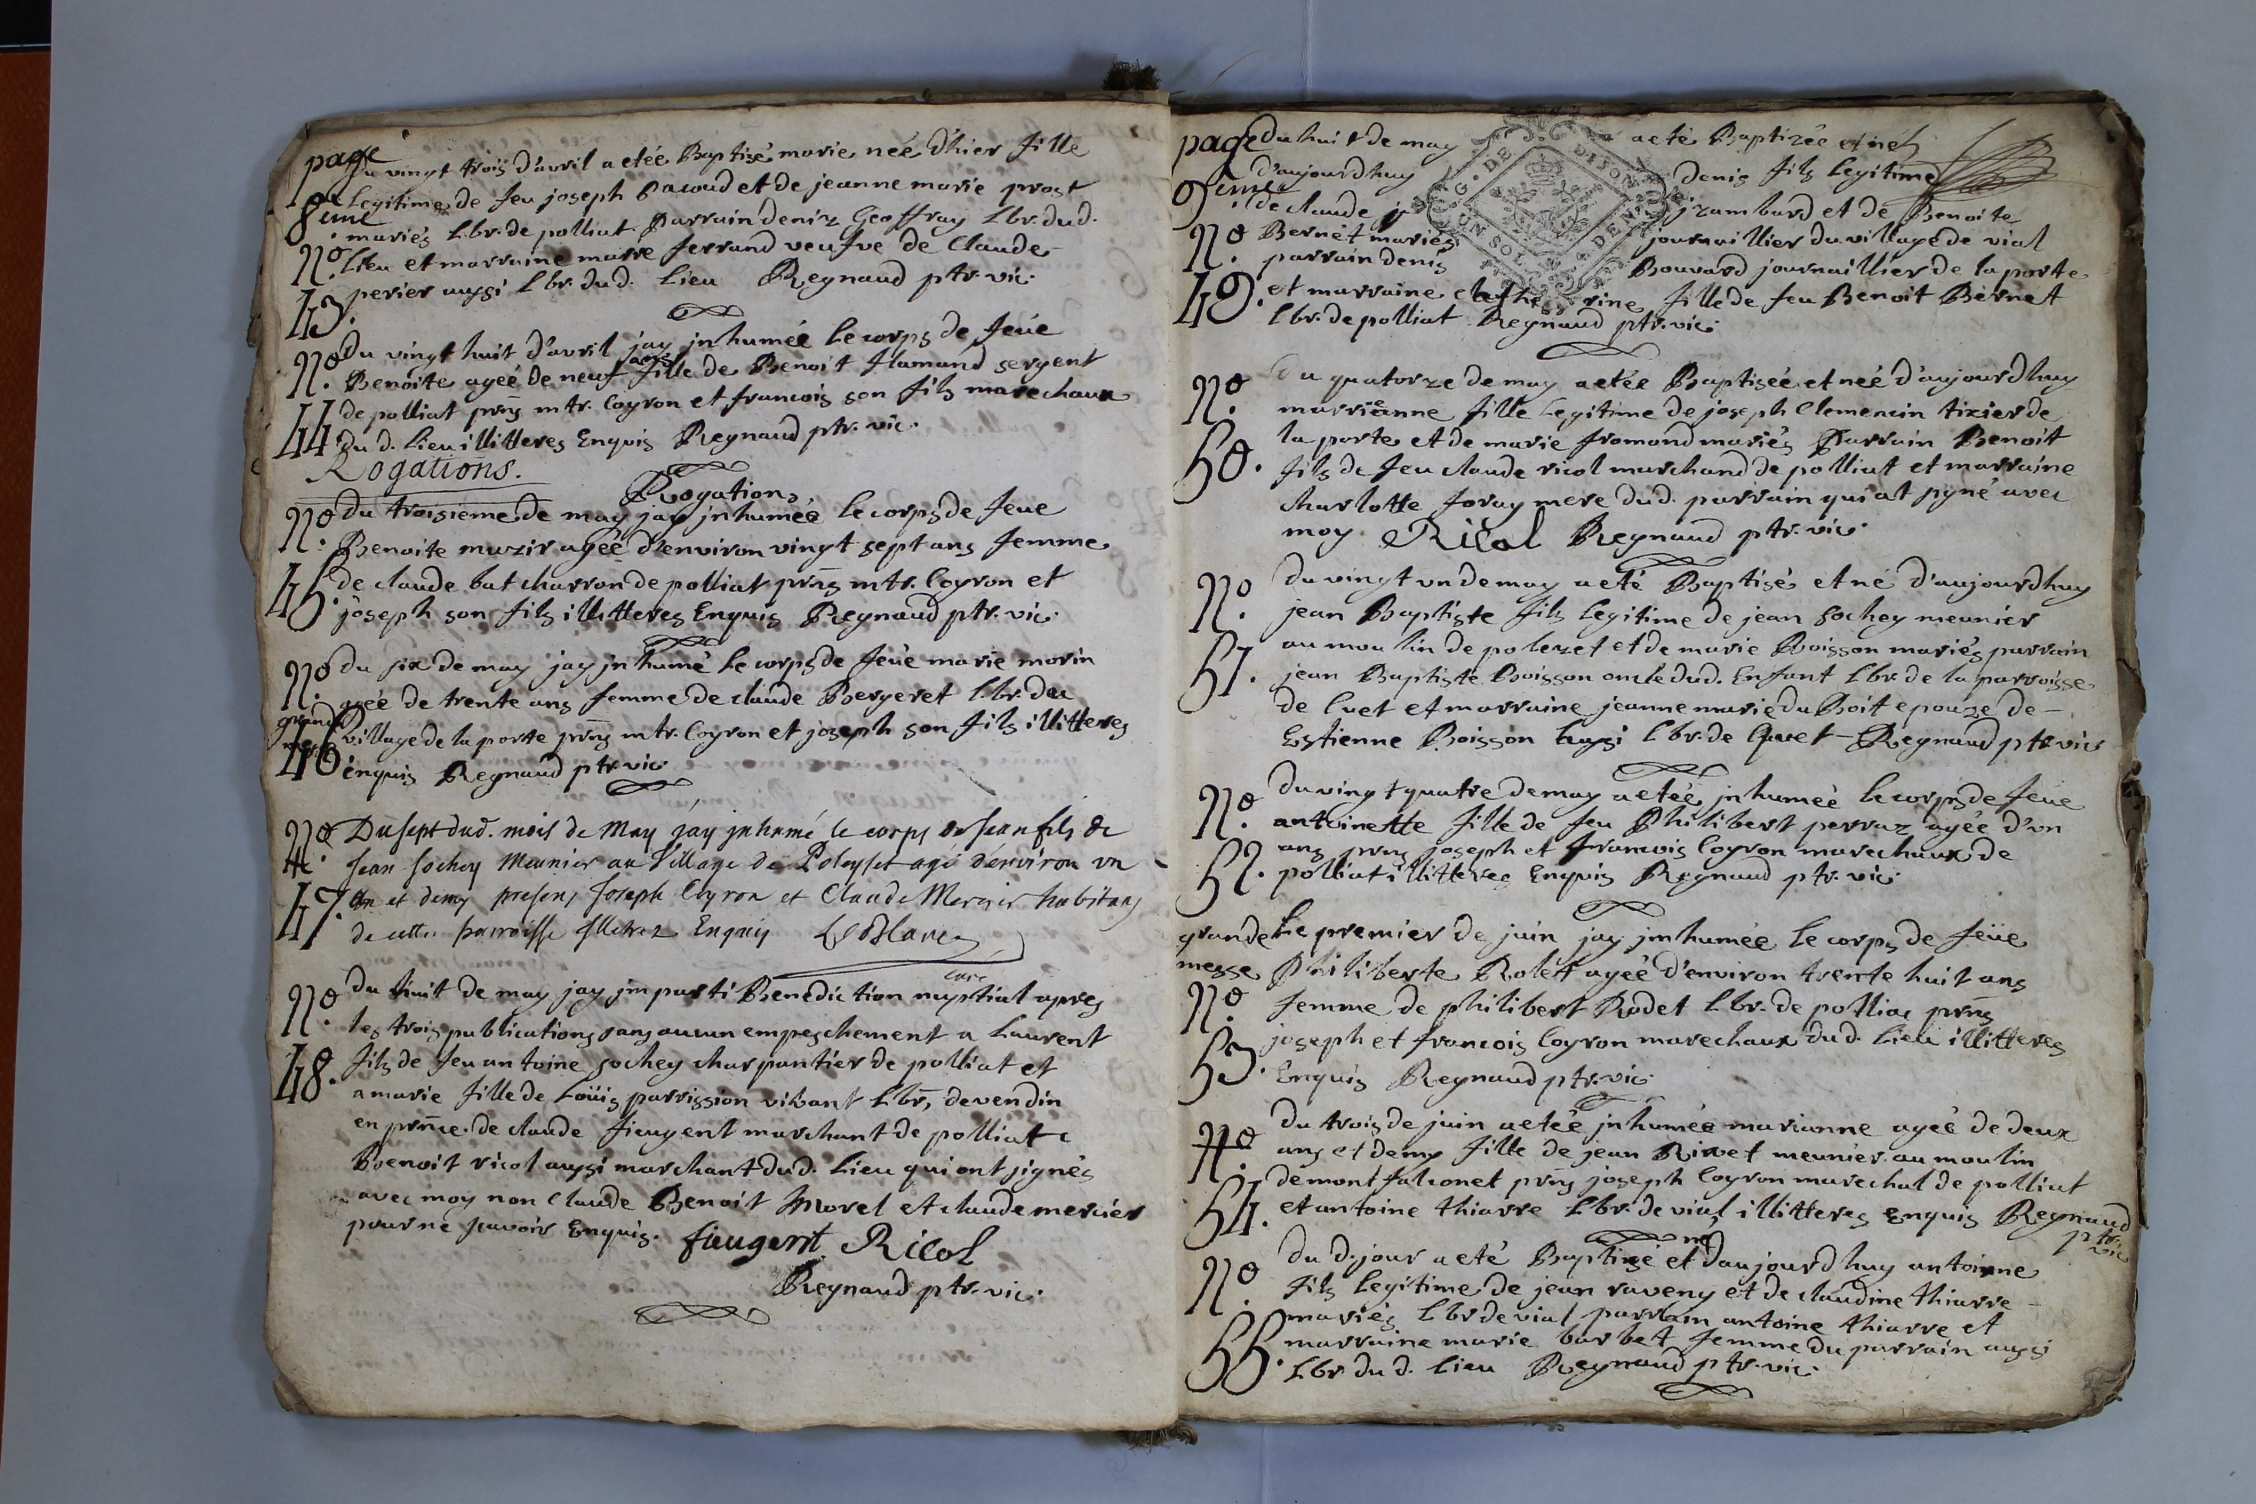 page
8eme
du vingt trois d'avril a etée Baptisé marie née d'hier fille
Legitime de feu joseph Bacoud et de jeanne marie prost
mariés Lbr. de polliat Parrain denis Geoffray Lbr. dud.
No. Lieu et marraine marie ferrand veufve de Claude
43. perier aussi Lbr. dud. Lieu Regnaud ptr. vic.
No. du vingt huit d'avril jay jnhumée Le corps de feüe
Benoite ageé de neuf ans fille de Benoit flamand sergent
44 de polliat prñs mtr. Coyron et francois son fils marechaux
du d. Lieu illitteres Enquis Regnaud ptr. vic.
Rogations.
Rogations
No. du troisieme de may jay jnhumée Le corps de feue
Benoite muzir ageé d'environ vingt sept ans femme
45. de claude bat charron de polliat prñs mtr. Coyron et
joseph son fils illitteres Enquis Regnaud ptr. vic.
No. du six de may jay jnhumé Le corps de feüe marie morin
ageé de trente ans femme de claude Bergeret Lbr. du
grand messe
46 village de la porte prñs mtr. Coyron et joseph son fils illitteres
enquis Regnaud ptr. vic.
No. Du sept dud. mois de May jáy jnhumé le corps de Jean fils de
Jean Sochey Meunier au Village de Poleyset agé d'environ vn
47. An et demy presens Joseph Coyron et Claude Mercier habitans
de cette parroisse Illetrez Enquis LeBlanc
curé
No. du huit de may jay jmparti Benediction nuptial apres
les trois publications sans aucun empeschement a Laurent
48. fils de feu antoine sochey charpantier de polliat et
a marie fille de Loüis parrission vivant Lbr, de vendin
en prñce. de claude fieugent marchant de polliat
Boenoit ricol aussi marchant dud. Lieu qui ont signés
avec moy non Claude Benoit Morel et claude mercier
pour ne scavoir Enquis. fieugent Ricol
Regnaud ptr. vic.
page
9eme.
du huit de may a eté Baptizée et né
d'aujourdhuy denis fils Legitime
de claude jrambard et de Benoite
No. Bernet mariés journaillier du village de vial
parrain denis Bouvard journaillier de la porte
49. et marraine catherine fille de feu Benoit Bernet
Lbr. de polliat Regnaud ptr. vic.
No. du quatorze de may a etée Baptisée et née d'aujourdhuy
marrieanne fille Legitime de joseph Clemencin tixier de
50. la porte et de marie fromond mariés Parrain Benoit
fils de feu claude ricol marchand de polliat et marraine
charlotte foray mere dud. parrain qui at signé avec
moy Ricol Regnaud ptr. vic.
No. du vingt vn de may a eté Baptisés et né d'aujourdhuy
jean Baptiste fils Legitime de jean sochey meunier
51. au moulin de polezet et de marie Boisson mariés parrain
jean Baptiste Boisson oncle dud. Enfant Lbr. de la parroisse
de Cuet et marraine jeanne marie du Boit epouze de
Estienne Boisson aussi Lbr. de Cuet Regnaud ptr. vic
No. du vingt quatre de may a etée jnhumée Le corps de feüe
antoinette fille de feu Philibert perraz agée d'vn
52. ans prñs joseph et francois Coyron marechaux de
polliat illitteres Enquis Regnaud ptr. vic.
grande messe
Le premier de juin jay jnhumée Le corps de feüe
Philiberte Rolet ageé d'environ trente huit ans
No. femme de philibert Rodet Lbr. de polliac prñs
53. joseph et francois Coyron marechaux du d. Lieu illitteres
Enquis Regnaud ptr. vic.
No. du trois de juin a etée jnhumée marianne ageé de deux
ans et demy fille de jean Rivet meunier au moulin
54. de montfalconet prñs joseph Coyron marechal de polliat
et antoine thiarre Lbr. de vial illitteres enquis Regnaud
ptr. vic
No. du d. jour a eté Baptisé et né d'aujourdhuy antoinne
fils Legitime de jean raveny et de claudine thiarre
55. mariés Lbr de vial parrain antoine thiarre et
marraine marie barbet femme du parrain aussi
Lbr. du d. Lieu Regnaud ptr. vic.